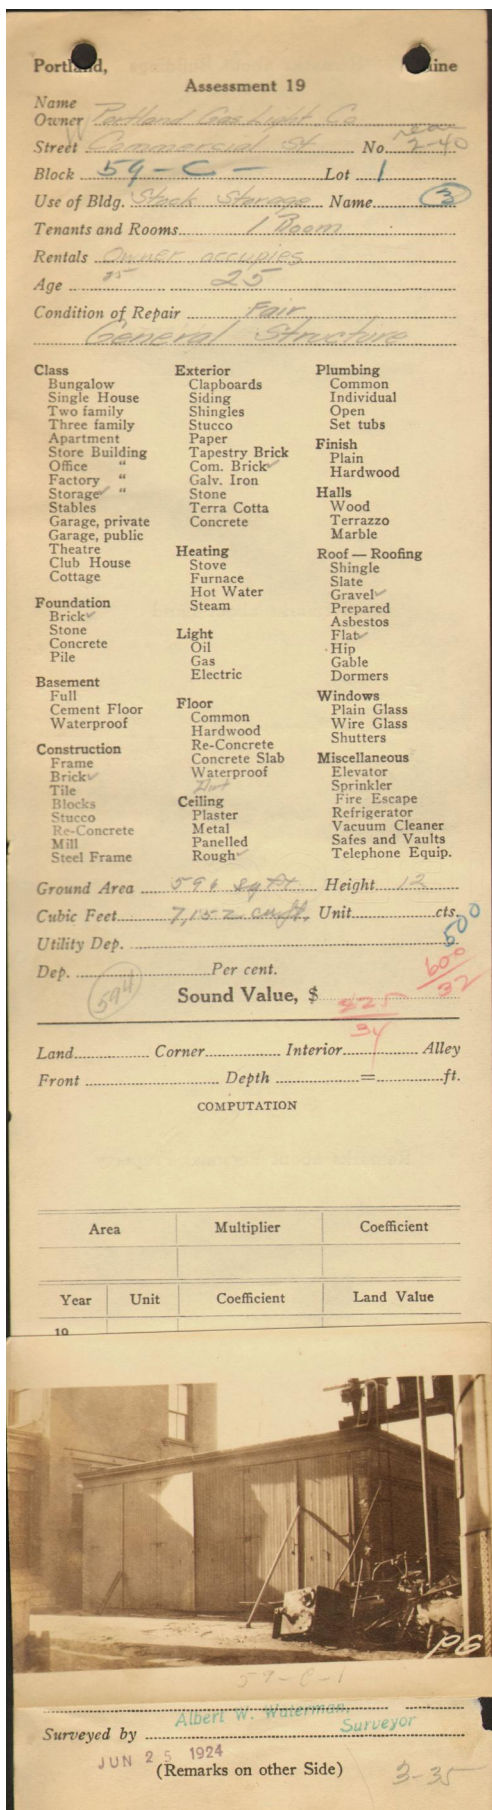 Portland, Maine
Assessment 19
Name
Owner Portland Gas Light Co
Street Commercial St. No. rear 2-40
Block 59-C- Lot 1
Use of Bldg. Stock Storage Name 3
Tenants and Rooms 1 Room
Rentals Owner occupies
Age 25 25
Condition of Repair Fair
General Structure
Class
Bungalow
Single House
Two family
Three family
Apartment
Store Building
Office "
Factory "
Storage ✓ "
Stables
Garage, private
Garage, public
Theatre
Club House
Cottage
Foundation
Brick ✓
Stone
Concrete
Pile
Basement
Full
Cement Floor
Waterproof
Construction
Frame
Brick ✓
Tile
Blocks
Stucco
Re-Concrete
Mill
Steel Frame
Exterior
Clapboards
Siding
Shingles
Stucco
Paper
Tapestry Brick
Com. Brick ✓
Galv. Iron
Stone
Terra Cotta
Concrete
Heating
Stove
Furnace
Hot Water
Steam
Light
Oil
Gas
Electric
Floor
Common
Hardwood
Re-Concrete
Concrete Slab
Waterproof
Dirt
Ceiling
Plaster
Metal
Panelled
Rough ✓
Plumbing
Common
Individual
Open
Set tubs
Finish
Plain
Hardwood
Halls
Wood
Terrazzo
Marble
Roof — Roofing
Shingle
Slate
Gravel ✓
Prepared
Asbestos
Flat ✓
Hip
Gable
Dormers
Windows
Plain Glass
Wire Glass
Shutters
Miscellaneous
Elevator
Sprinkler
Fire Escape
Refrigerator
Vacuum Cleaner
Safes and Vaults
Telephone Equip.
Ground Area 596 sq ft Height 12
Cubic Feet 7,152 cu ft. Unit cts.
500
Utility Dep.
Dep. Per cent.
600
32
594
Sound Value, $
525
34
Land Corner Interior Alley
Front Depth = ft.
COMPUTATION
Area Multiplier Coefficient
Year Unit Coefficient Land Value
19
P6
59-C-1
Albert W. Waterman,
Surveyed by Surveyor
JUN 25 1924
(Remarks on other Side)
3-35